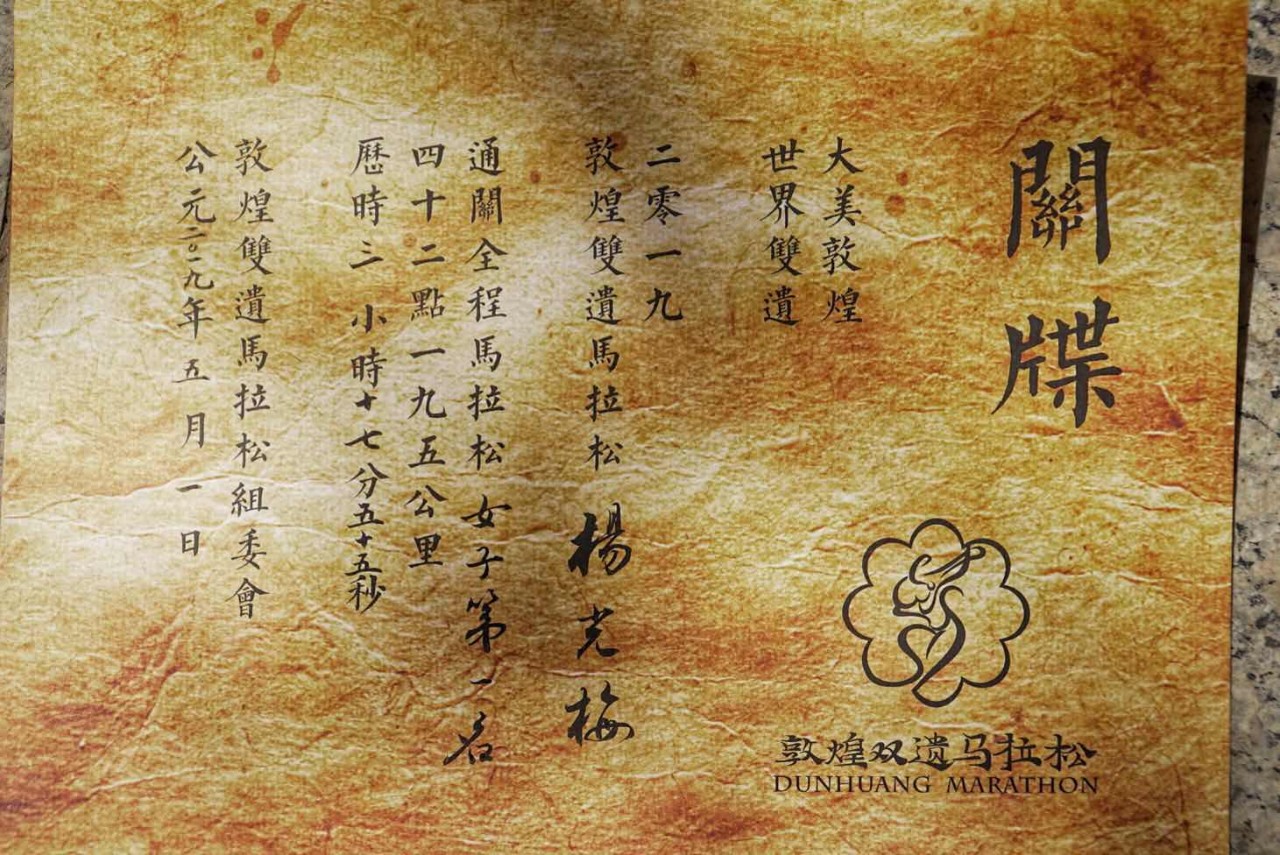 關牒
大美敦煌
世界雙遺
二零一九
敦煌雙遺馬拉松 楊光梅
通關全程馬拉松 女子第一名
四十二點一九五公里
歷時三 小時十七分五十五秒
敦煌雙遺馬拉松組委會
公元二〇一九年 五 月 一 日
敦煌双遗马拉松
DUNHUANG MARATHON